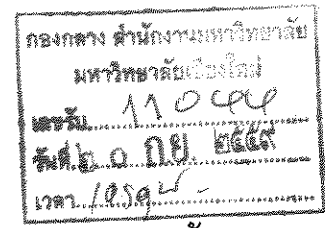 กองกลาง สำนักงานมหาวิทยาลัย
มหาวิทยาลัยเชียงใหม่
เลขรับ 11044
วันที่ ๒๐ ก.ย. ๒๕๕๙
เวลา